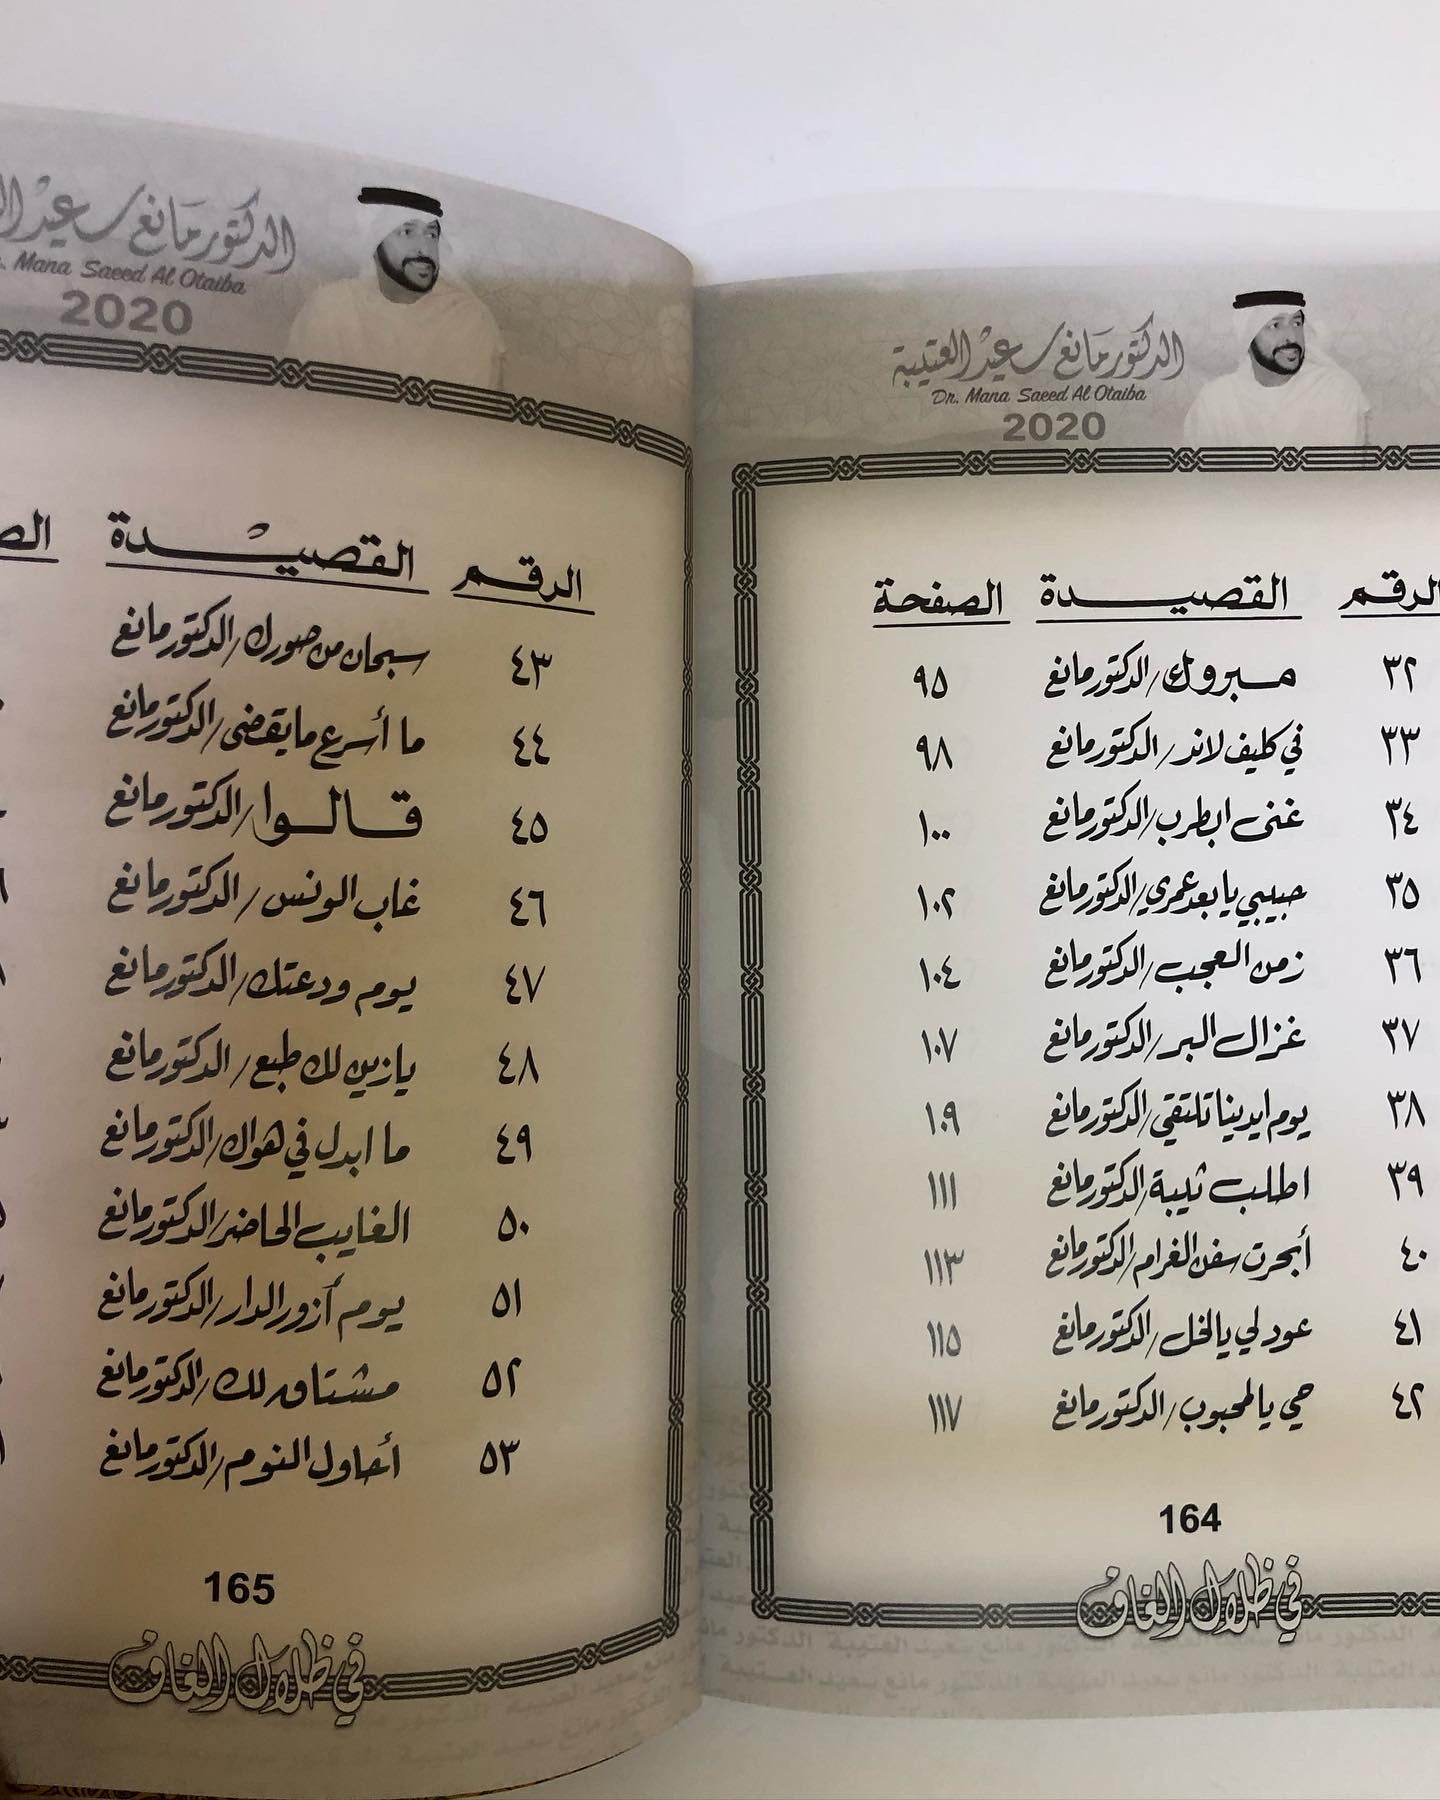 الدكتور مانع سعيد العتيبة
Dr. Mana Saeed Al Otaiba
2020
الرقم القصيدة الصفحة
٣٢ مبروك/الدكتور مانع ٩٥
٣٣ في كليف لاند/الدكتور مانع ٩٨
٣٤ غنى ابطرب/الدكتور مانع ١٠٠
٣٥ حبيبي يا بعد عمري/الدكتور مانع ١٠٢
٣٦ زمن العجب/الدكتور مانع ١٠٤
٣٧ غزال البر/الدكتور مانع ١٠٧
٣٨ يوم ايدينا تلتقي/الدكتور مانع ١٠٩
٣٩ اطلب ثيبة/الدكتور مانع ١١١
٤٠ أبحرت سفن الغرام/الدكتور مانع ١١٣
٤١ عود لي يالخل/الدكتور مانع ١١٥
٤٢ حي يالمحبوب/الدكتور مانع ١١٧
164
في ظلال الغاف
الدكتور مانع سعيد
Mana Saeed Al Otaiba
2020
الرقم القصيدة
٤٣ سبحان من صورك/الدكتور مانع
٤٤ ما أسرع ما يقضى/الدكتور مانع
٤٥ قالوا/الدكتور مانع
٤٦ غاب الونس/الدكتور مانع
٤٧ يوم ودعتك/الدكتور مانع
٤٨ يا زين لك طبع/الدكتور مانع
٤٩ ما ابدل في هواك/الدكتور مانع
٥٠ الغايب الحاضر/الدكتور مانع
٥١ يوم أزور الدار/الدكتور مانع
٥٢ مشتاق لك/الدكتور مانع
٥٣ أحاول النوم/الدكتور مانع
165
في ظلال الغاف